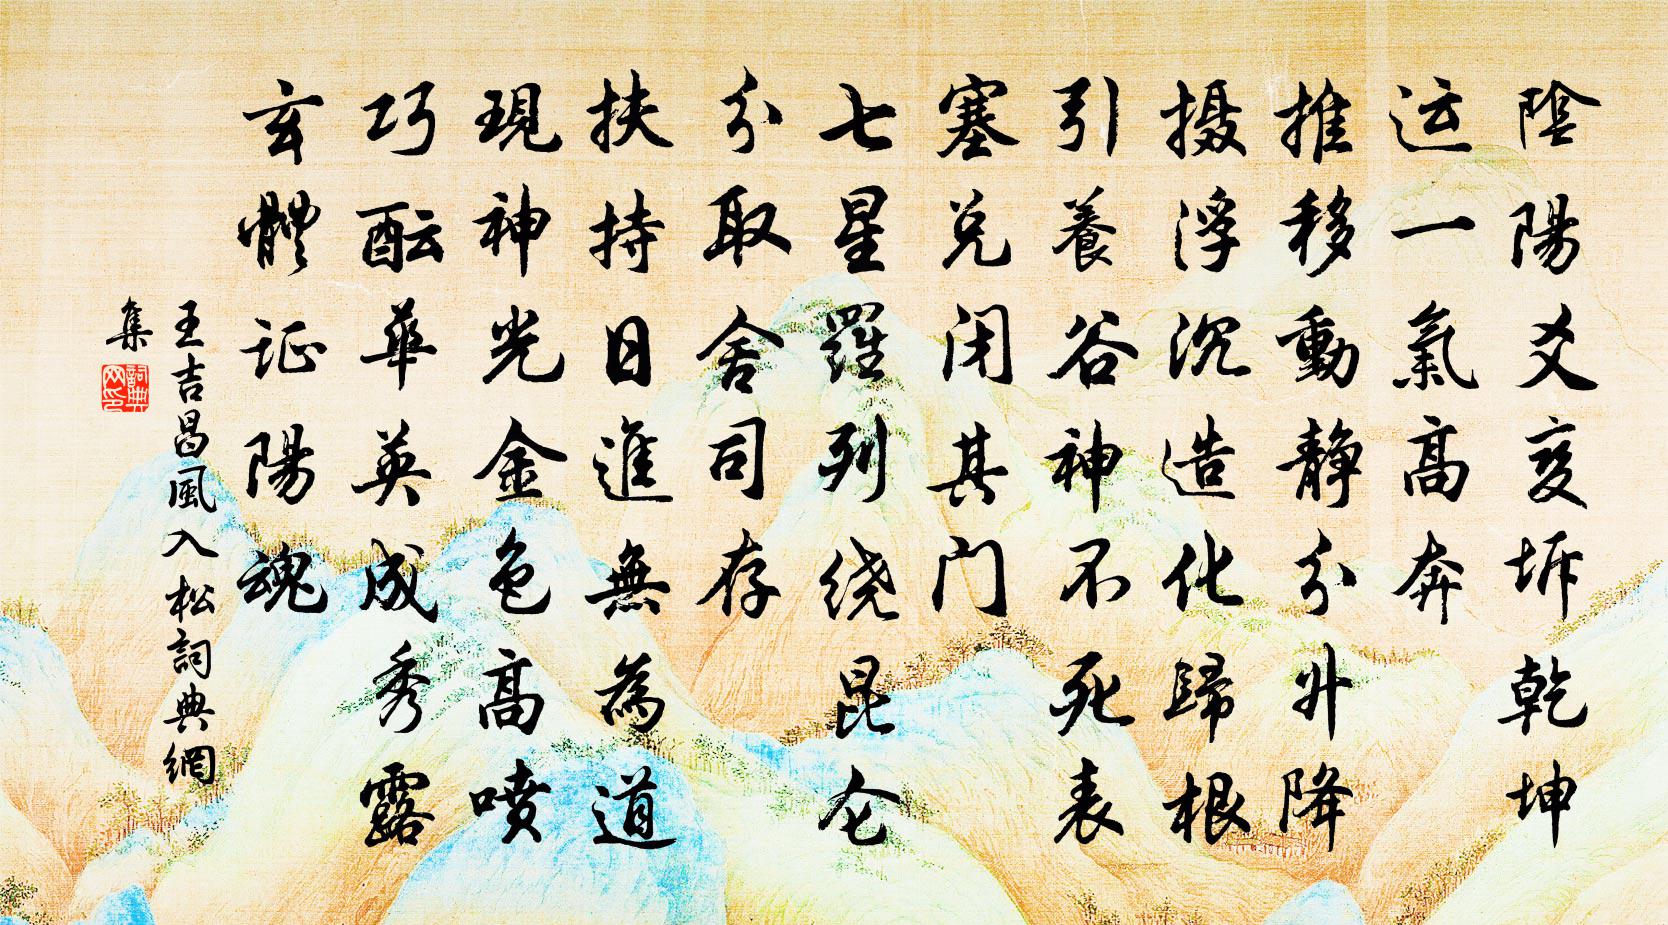 陰陽爻变坼乾坤
运一氣高奔
推移動静分升降
摄浮沉造化歸根
引養谷神不死表
塞兑闭其门
七星羅列绕昆仑
分取舍司存
扶持日進無為道
現神光金色高喷
巧酝華英成秀露
玄體证陽魂
王吉昌風入松詞典網
集
詞典
网印